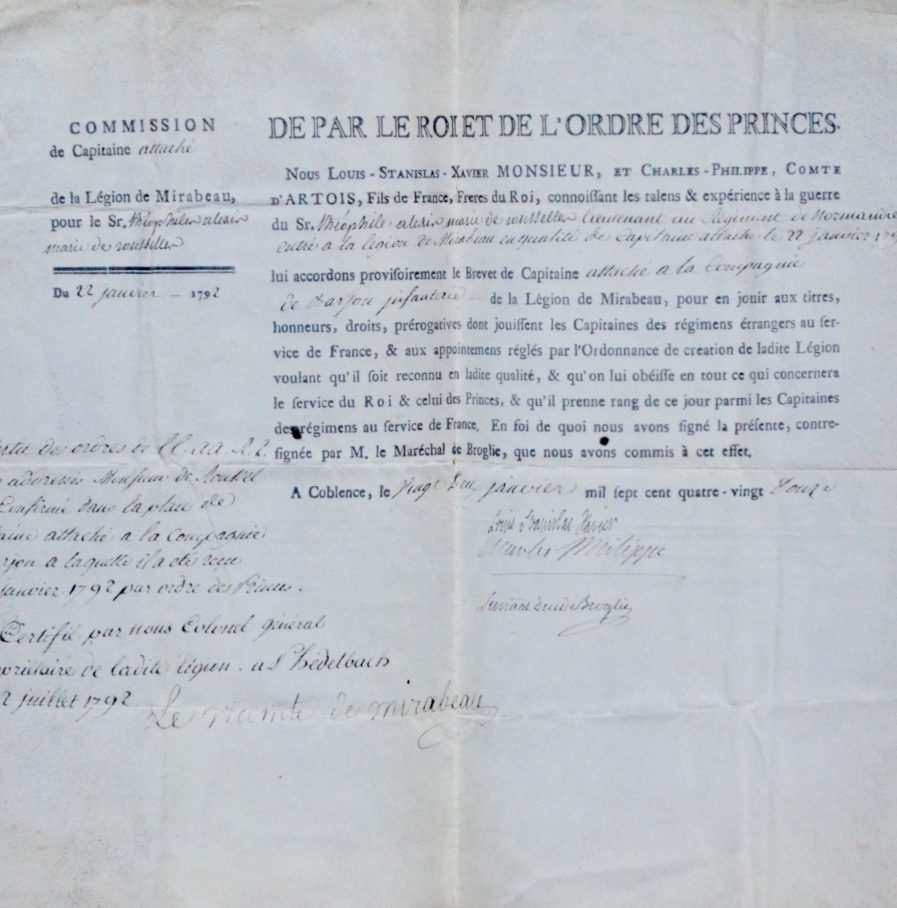 COMMISSION
de Capitaine attaché
de la Légion de Mirabeau,
pour le Sr. théophile alexis
marie de roussellen
Du 22 janvier - 1792
DE PAR LE ROI ET DE L'ORDRE DES PRINCES.
Nous Louis-Stanislas-Xavier MONSIEUR, et Charles-Philippe, Comte
d'ARTOIS, Fils de France, Freres du Roi, connoiſſant les talens & expérience à la guerre
du Sr. théophile alexis marie de roussellen lieutenant au Régiment de Normandie
entré a la légion de Mirabeau en qualité de Capitaine attaché le 22 janvier
lui accordons proviſoirement le Brevet de Capitaine attaché a la Compagnie
de Barjon infanterie - de la Légion de Mirabeau, pour en jouir aux titres,
honneurs, droits, prérogatives dont jouiſſent les Capitaines des régimens étrangers au ſer-
vice de France, & aux appointemens réglés par l'Ordonnance de creation de ladite Légion
voulant qu'il ſoit reconnu en ladite qualité, & qu'on lui obéiſſe en tout ce qui concernera
le ſervice du Roi & celui des Princes, & qu'il prenne rang de ce jour parmi les Capitaines
des régimens au ſervice de France, En foi de quoi nous avons ſigné la préſente, contre-
ſignée par M. le Maréchal de Broglie, que nous avons commis à cet effet.
A Coblence, le vingt Deux janvier mil ſept cent quatre-vingt Douze
Louis Stanislas Xavier
Charles Philippe
Le mal duc de Broglie
des ordres de LL. AA. RR.
adressés Monsieur de
Confirmé dans la place de
attaché a la Compagnie
a laquelle il a été recu
janvier 1792 par ordre des Princes.
Certifié par nous Colonel général
propriétaire de ladite légion. a
2 juillet 1792.
Le vicomte de mirabeau